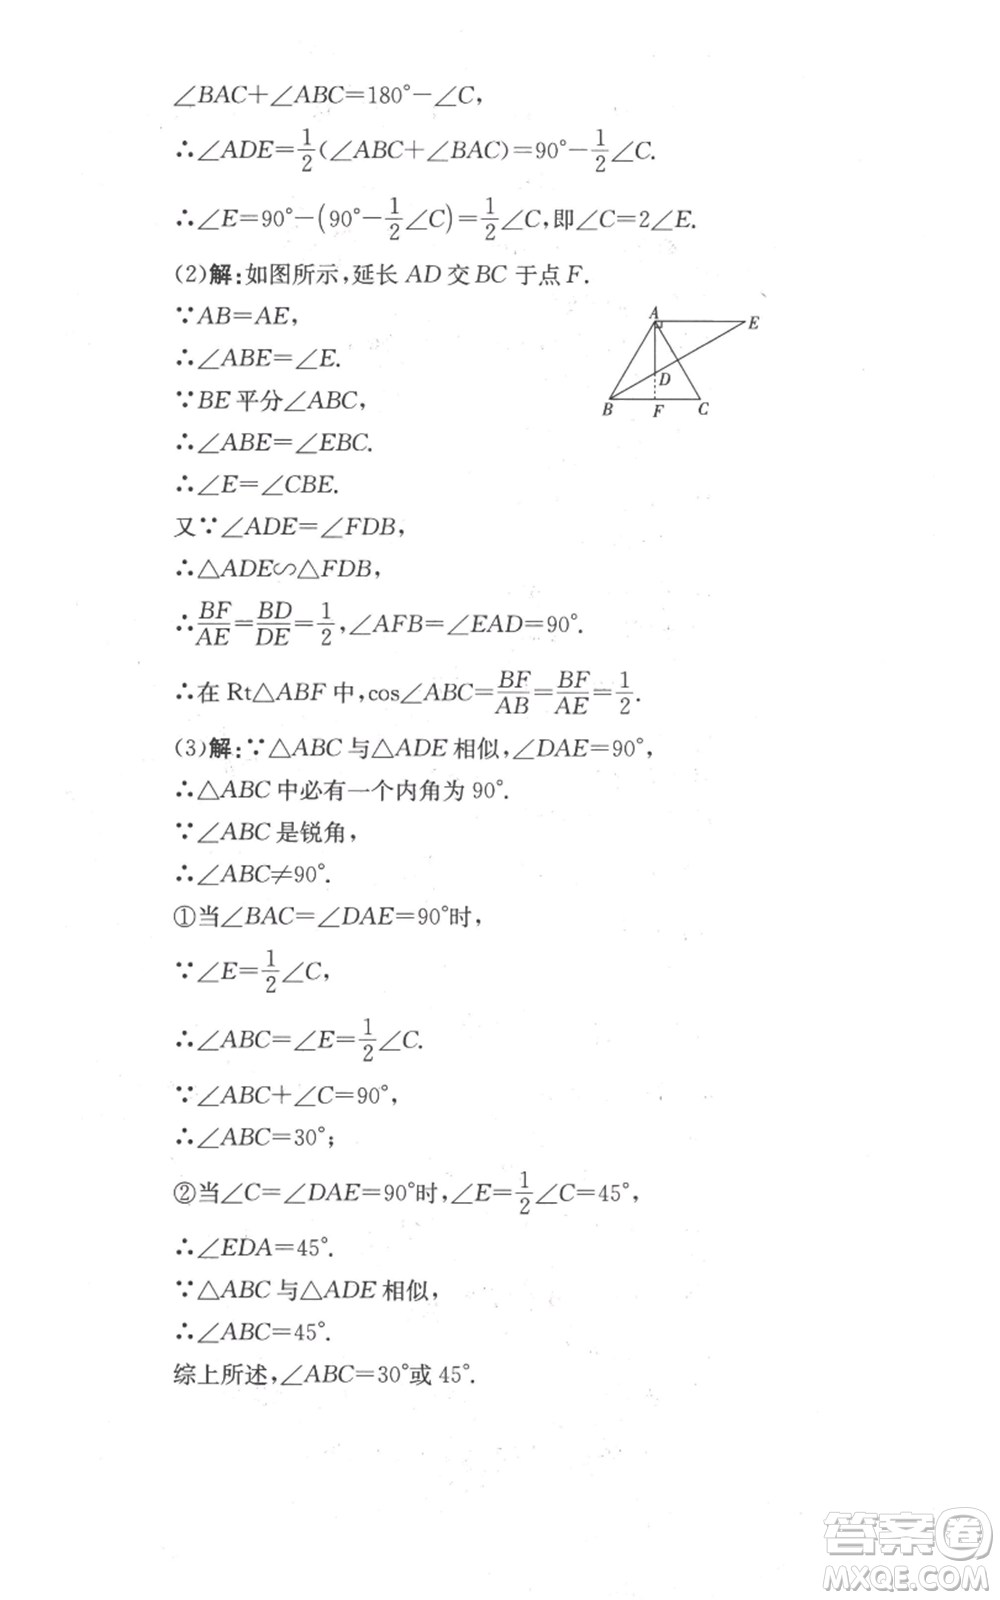 ∠BAC+∠ABC=180°-∠C,
∴∠ADE=1/2(∠ABC+∠BAC)=90°-1/2∠C.
∴∠E=90°-(90°-1/2∠C)=1/2∠C,即∠C=2∠E.
(2)解:如图所示,延长 AD 交 BC 于点 F.
∵AB=AE,
∴∠ABE=∠E.
∵BE 平分∠ABC,
∴∠ABE=∠EBC.
∴∠E=∠CBE.
又∵∠ADE=∠FDB,
∴△ADE∽△FDB,
∴BF/AE=BD/DE=1/2,∠AFB=∠EAD=90°.
∴在 Rt△ABF 中,cos∠ABC=BF/AB=BF/AE=1/2.
A
E
D
B
F
C
(3)解:∵△ABC 与△ADE 相似,∠DAE=90°,
∴△ABC 中必有一个内角为 90°.
∵∠ABC 是锐角,
∴∠ABC≠90°.
①当∠BAC=∠DAE=90°时,
∵∠E=1/2∠C,
∴∠ABC=∠E=1/2∠C.
∵∠ABC+∠C=90°,
∴∠ABC=30°;
②当∠C=∠DAE=90°时,∠E=1/2∠C=45°,
∴∠EDA=45°.
∵△ABC 与△ADE 相似,
∴∠ABC=45°.
综上所述,∠ABC=30°或 45°.
答案卷
MXQE.COM